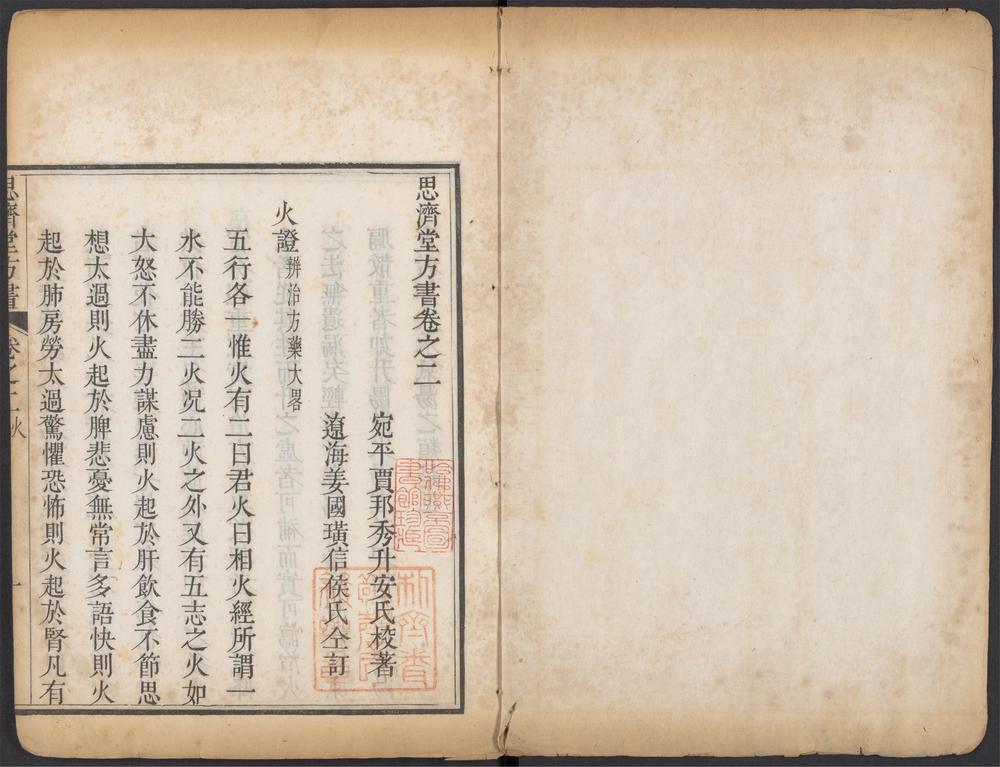 思濟堂方書卷之二
宛平賈邦秀升安氏校著
遼海姜國璜信侯氏仝訂
火證辨治方藥大畧
五行各一惟火有二曰君火曰相火經所謂一
水不能勝二火况二火之外又有五志之火如
大怒不休盡力謀慮則火起於肝飲食不節思
想太過則火起於脾悲憂無常言多語快則火
起於肺房勞太過驚懼恐怖則火起於腎凡有
思濟堂方書 卷之二 火 一